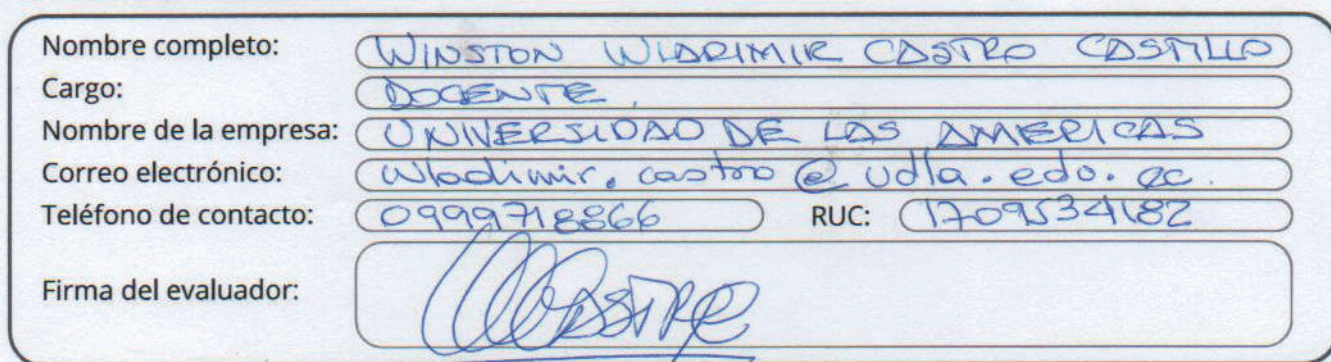 Nombre completo: WINSTON WLADIMIR CASTRO CASTILLO
Cargo: DOCENTE.
Nombre de la empresa: UNIVERSIDAD DE LAS AMERICAS
Correo electrónico: wladimir.castro@udla.edu.ec.
Teléfono de contacto: 0999718866 RUC: 1709534182
Firma del evaluador: WCASTRO